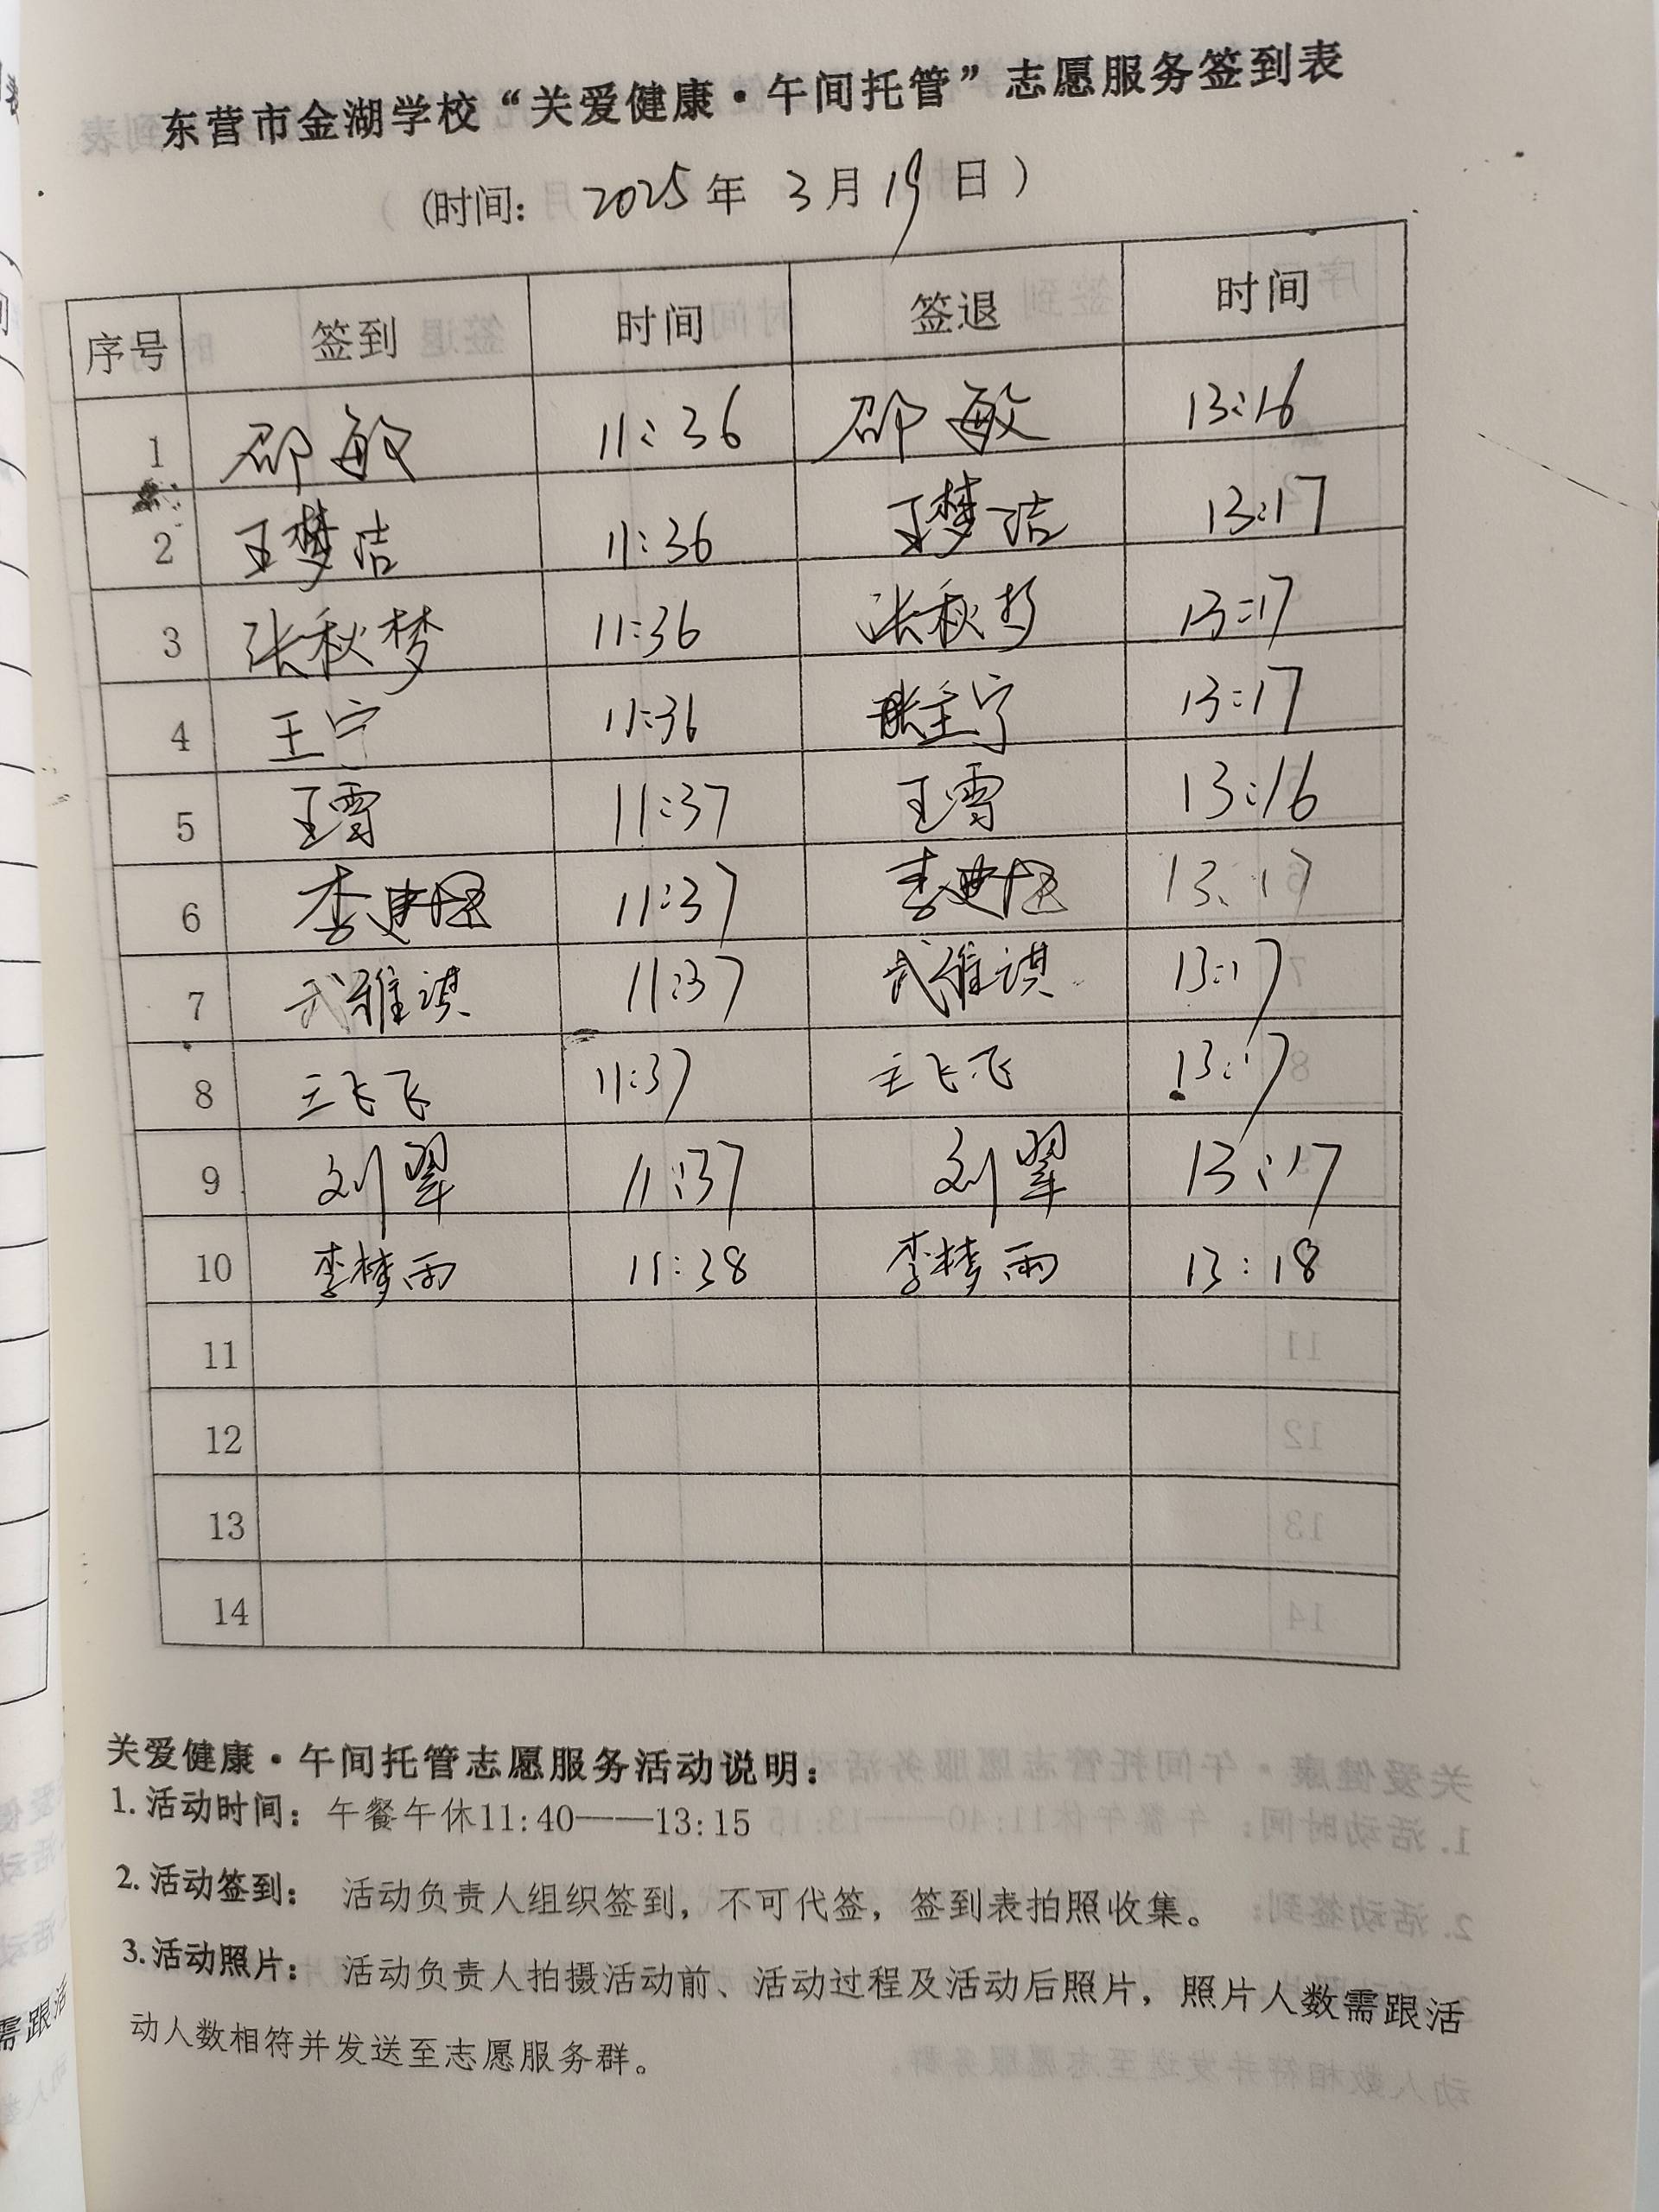 东营市金湖学校“关爱健康·午间托管”志愿服务签到表
(时间: 2025年 3月19日)
序号 签到 时间 签退 时间
1 邵敏 11:36 邵敏 13:16
2 王梦洁 11:36 王梦洁 13:17
3 张秋梦 11:36 张秋梦 13:17
4 王宁 11:36 王宁 13:17
5 王雪 11:37 王雪 13:16
6 李 11:37 李 13:17
7 武雅淇 11:37 武雅淇 13:17
8 王飞飞 11:37 王飞飞 13:17
9 刘翠 11:37 刘翠 13:17
10 李梦雨 11:38 李梦雨 13:18
11
12
13
14
关爱健康·午间托管志愿服务活动说明:
1.活动时间: 午餐午休11:40——13:15
2.活动签到: 活动负责人组织签到,不可代签,签到表拍照收集。
3.活动照片: 活动负责人拍摄活动前、活动过程及活动后照片,照片人数需跟活
动人数相符并发送至志愿服务群。